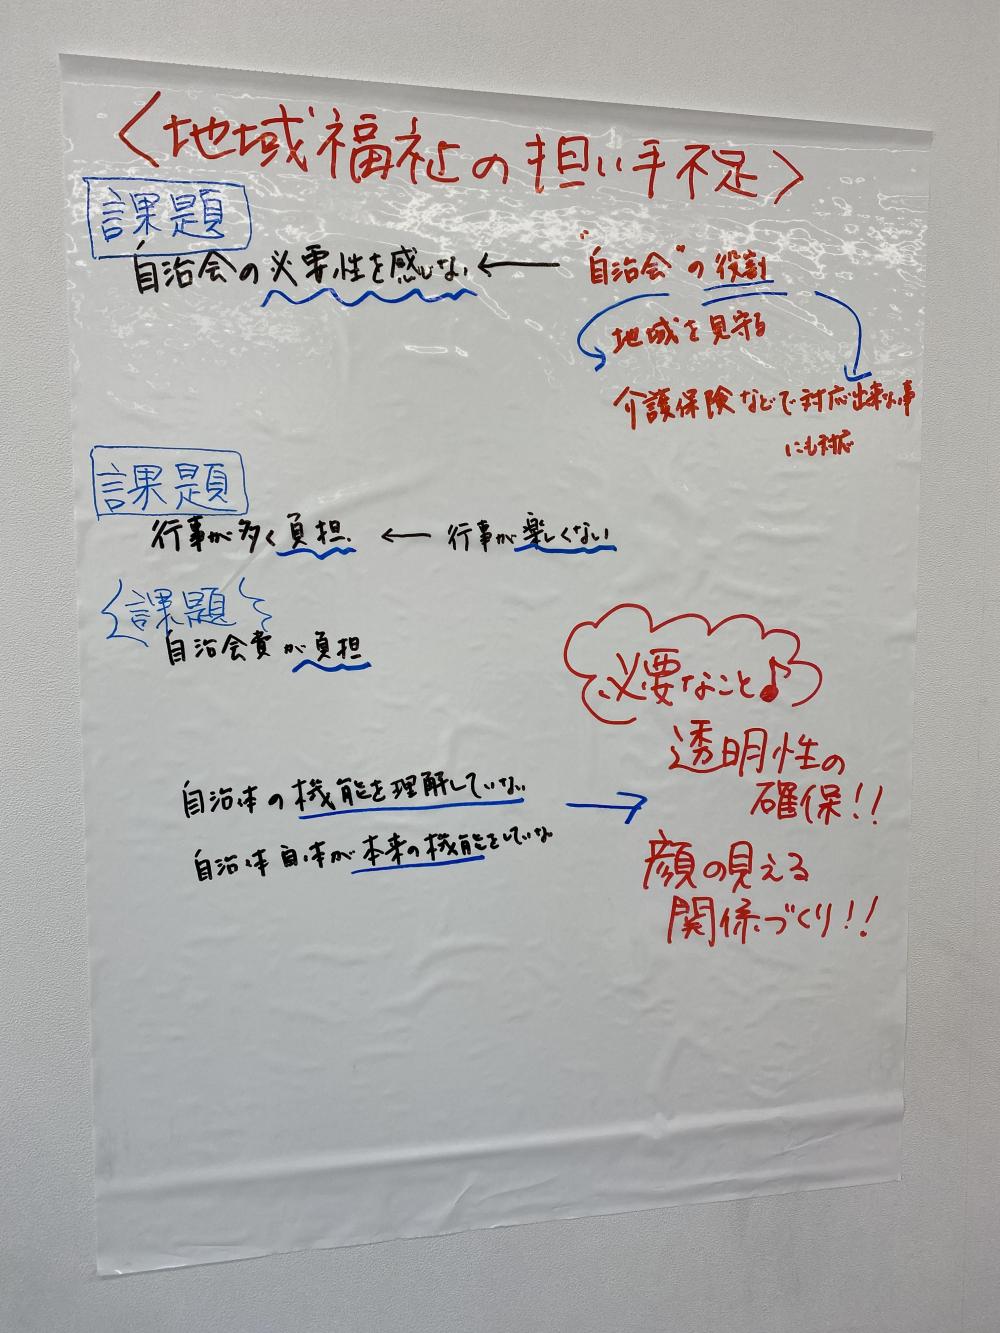 <地域福祉の担い手不足>
課題
自治会の必要性を感じない ← "自治会"の役割
地域を見守る
介護保険などで対応出来ない事
にも対応
課題
行事が多く負担 ← 行事が楽しくない
課題
自治会費が負担
必要なこと♪
透明性の
確保!!
自治体の機能を理解していない →
自治体自体が本来の機能をしていない
顔の見える
関係づくり!!